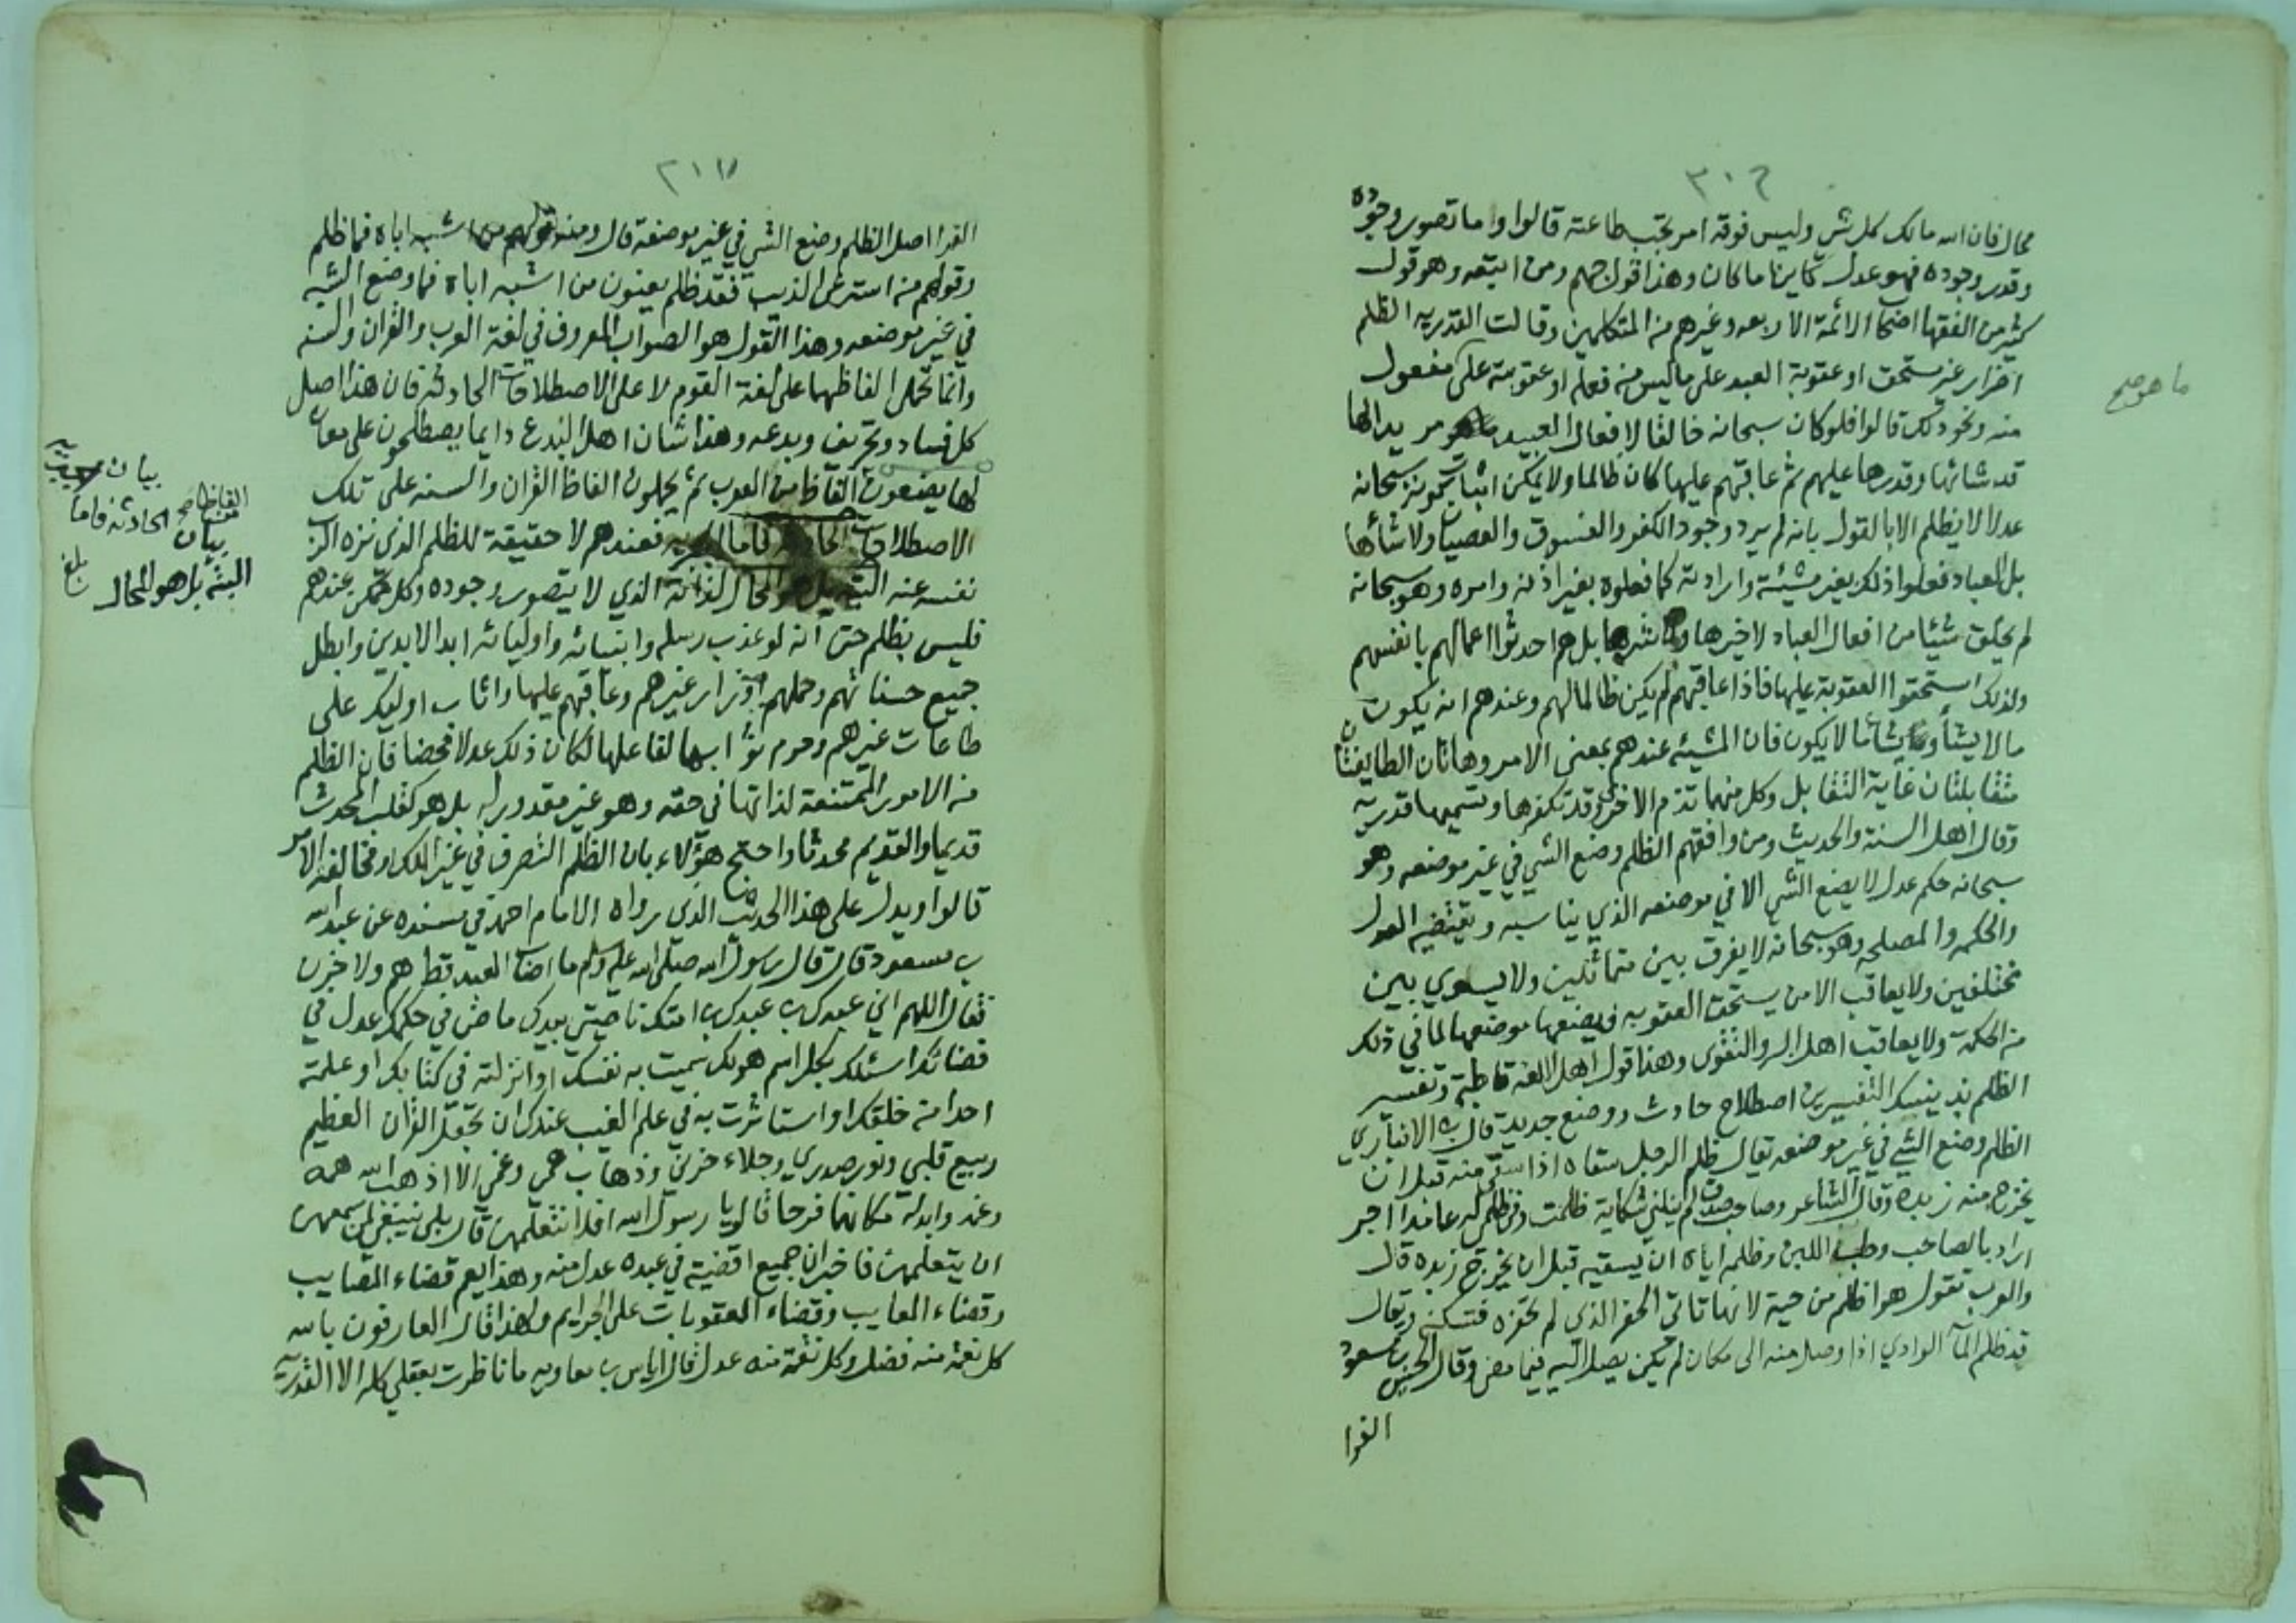 ٣٠٦
محال فان الله مالك كل شي وليس فوقه امر تجب طاعته قالوا وما تصور وجوده
وقدر وجوده فهو عدل كاينا ما كان وهذا قول جهم ومن اتبعه وهو قول
كثير من الفقها اصحاب الائمة الاربعه وغيرهم من المتكلمين وقالت القدريه الظلم
اضرار غير مستحق او عقوبة العبد على ما ليس من فعله او عقوبته على مفعول
منه ونحو ذلك قالوا فلو كان سبحانه خالقا لافعال العبيد مريدا لها
ما هو صح
قد شائها وقدرها عليهم ثم عاقبهم عليها كان ظالما ولا يمكن اثبات كونه سبحانه
عدلا لا يظلم الا بالقول بانه لم يرد وجود الكفر والفسوق والعصيان ولا شأها
بل العباد فعلوا ذلك بغير مشيئته وارادته كما فعلوه بغير اذنه وامره وهو سبحانه
لم يخلق شيئا من افعال العباد لا خيرها ولا شرها بل هم احدثوا اعمالهم بانفسهم
ولذلك استحقوا العقوبة عليها فاذا عاقبهم لم يكن ظالما لهم وعندهم انه يكون
ما لا يشأ ويشأ ما لا يكون فان المشيئه عندهم بمعنى الامر وهاتان الطايفتان
متقابلتان غاية التقابل وكل منهما تذم الاخرى وقد تكفرها وتسميها قدريه
وقال اهل السنة والحديث ومن وافقهم الظلم وضع الشي في غير موضعه وهو
سبحانه حكم عدل لا يضع الشي الا في موضعه الذي يناسبه ويقتضيه العدل
والحكمه والمصلحه وهو سبحانه لا يفرق بين متماثلين ولا يسوي بين
مختلفين ولا يعاقب الا من يستحق العقوبه ويضعها موضعها لما في ذلك
من الحكمة ولا يعاقب اهل البر والتقوى وهذا قول اهل اللغه قاطبة وتفسير
الظلم بذينك التفسيرين اصطلاح حادث ووضع جديد قال بن الانباري
الظلم وضع الشي في غير موضعه يقال ظلم الرجل سقاه اذا سقى منه قبل ان
يخرج منه زبده وقال الشاعر وصاحب صدق لم ينلني شكاية ظلمت وفي ظلمي له عامدا اجر
اراد بالصاحب وطب اللبن وظلمه اياه ان يسقيه قبل ان يخرج زبده قال
والعرب تقول هو اظلم من حية لانها تاتي الحفر الذي لم تحفره فتسكنه ويقال
قد ظلم المآ الوادي اذا وصل منه الى مكان لم يكن يصل اليه فيما مضى وقال الحسن بن مسعود
الفرا
٣٠٧
الفرا اصل الظلم وضع الشي في غير موضعه قال ومنه قولهم من اشبه اباه فما ظلم
وقولهم من استرعى الذيب فقد ظلم يعنون من اشبه اباه فما وضع الشبه
في غير موضعه وهذا القول هو الصواب المعروف في لغة العرب والقران والسنه
وانما تحمل الفاظهما على لغة القوم لا على الاصطلاحات الحادثه فان هذا اصل
كل فساد وتحريف وبدعه وهذا شان اهل البدع دايما يصطلحون على معان
لها يضعون الفاظ من العرب ثم يحملون الفاظ القران والسنه على تلك
الاصطلاحات الحادثه فاما فعندهم لا حقيقة للظلم الذي نزه الرب
بيان
الفاظا صح الحادثه فاما
بيان
البته بل هو المحال
بلغ
نفسه عنه البته بل هو المحال لذاته الذي لا يتصور وجوده وكل ممكن عندهم
فليس بظلم حتى انه لو عذب رسله وانبيائه واوليائه ابد الابدين وابطل
جميع حسناتهم وحملهم اوزار غيرهم وعاقبهم عليها واثاب اوليك على
طاعات غيرهم وحرم ثوابها لفاعلها لكان ذلك عدلا محضا فان الظلم
من الامور الممتنعة لذاتها في حقه وهو غير مقدور له بل هو كقلب المحدث
قديما والقديم محدثا واحتج هؤلاء بان الظلم التصرف في غير الملك او مخالفة الآمر
قالوا ويدل على هذا الحديث الذي رواه الامام احمد في مسنده عن عبد الله
بن مسعود قال قال رسول الله صلى الله عليه وسلم ما اصاب العبد قط هم ولا حزن
فقال اللهم اني عبدك بن عبدك بن امتك ناصيتي بيدك ماض في حكمك عدل في
قضائك اسئلك بكل اسم هو لك سميت به نفسك او انزلته في كتابك او علمته
احدا من خلقك او استاثرت به في علم الغيب عندك ان تجعل القران العظيم
ربيع قلبي ونور صدري وجلاء حزني وذهاب همي وغمي الا اذهب الله همه
وغمه وابدله مكانهما فرحا قالو يا رسول الله افلا نتعلمهن قال بلى ينبغي لمن سمعهن
ان يتعلمهن فاخبر ان جميع اقضيته في عبده عدل منه وهذا يعم قضاء المصايب
وقضاء المعايب وقضاء العقوبات على الجرايم ولهذا قال العارفون بالله
كل نعمة منه فضل وكل نقمة منه عدل قال اياس بن معاويه ما ناظرت بعقلي كله الا القدريه